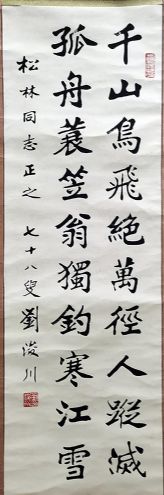 千山鳥飛絶萬徑人蹤滅
孤舟蓑笠翁獨釣寒江雪
松林同志正之 七十八叟劉浚川